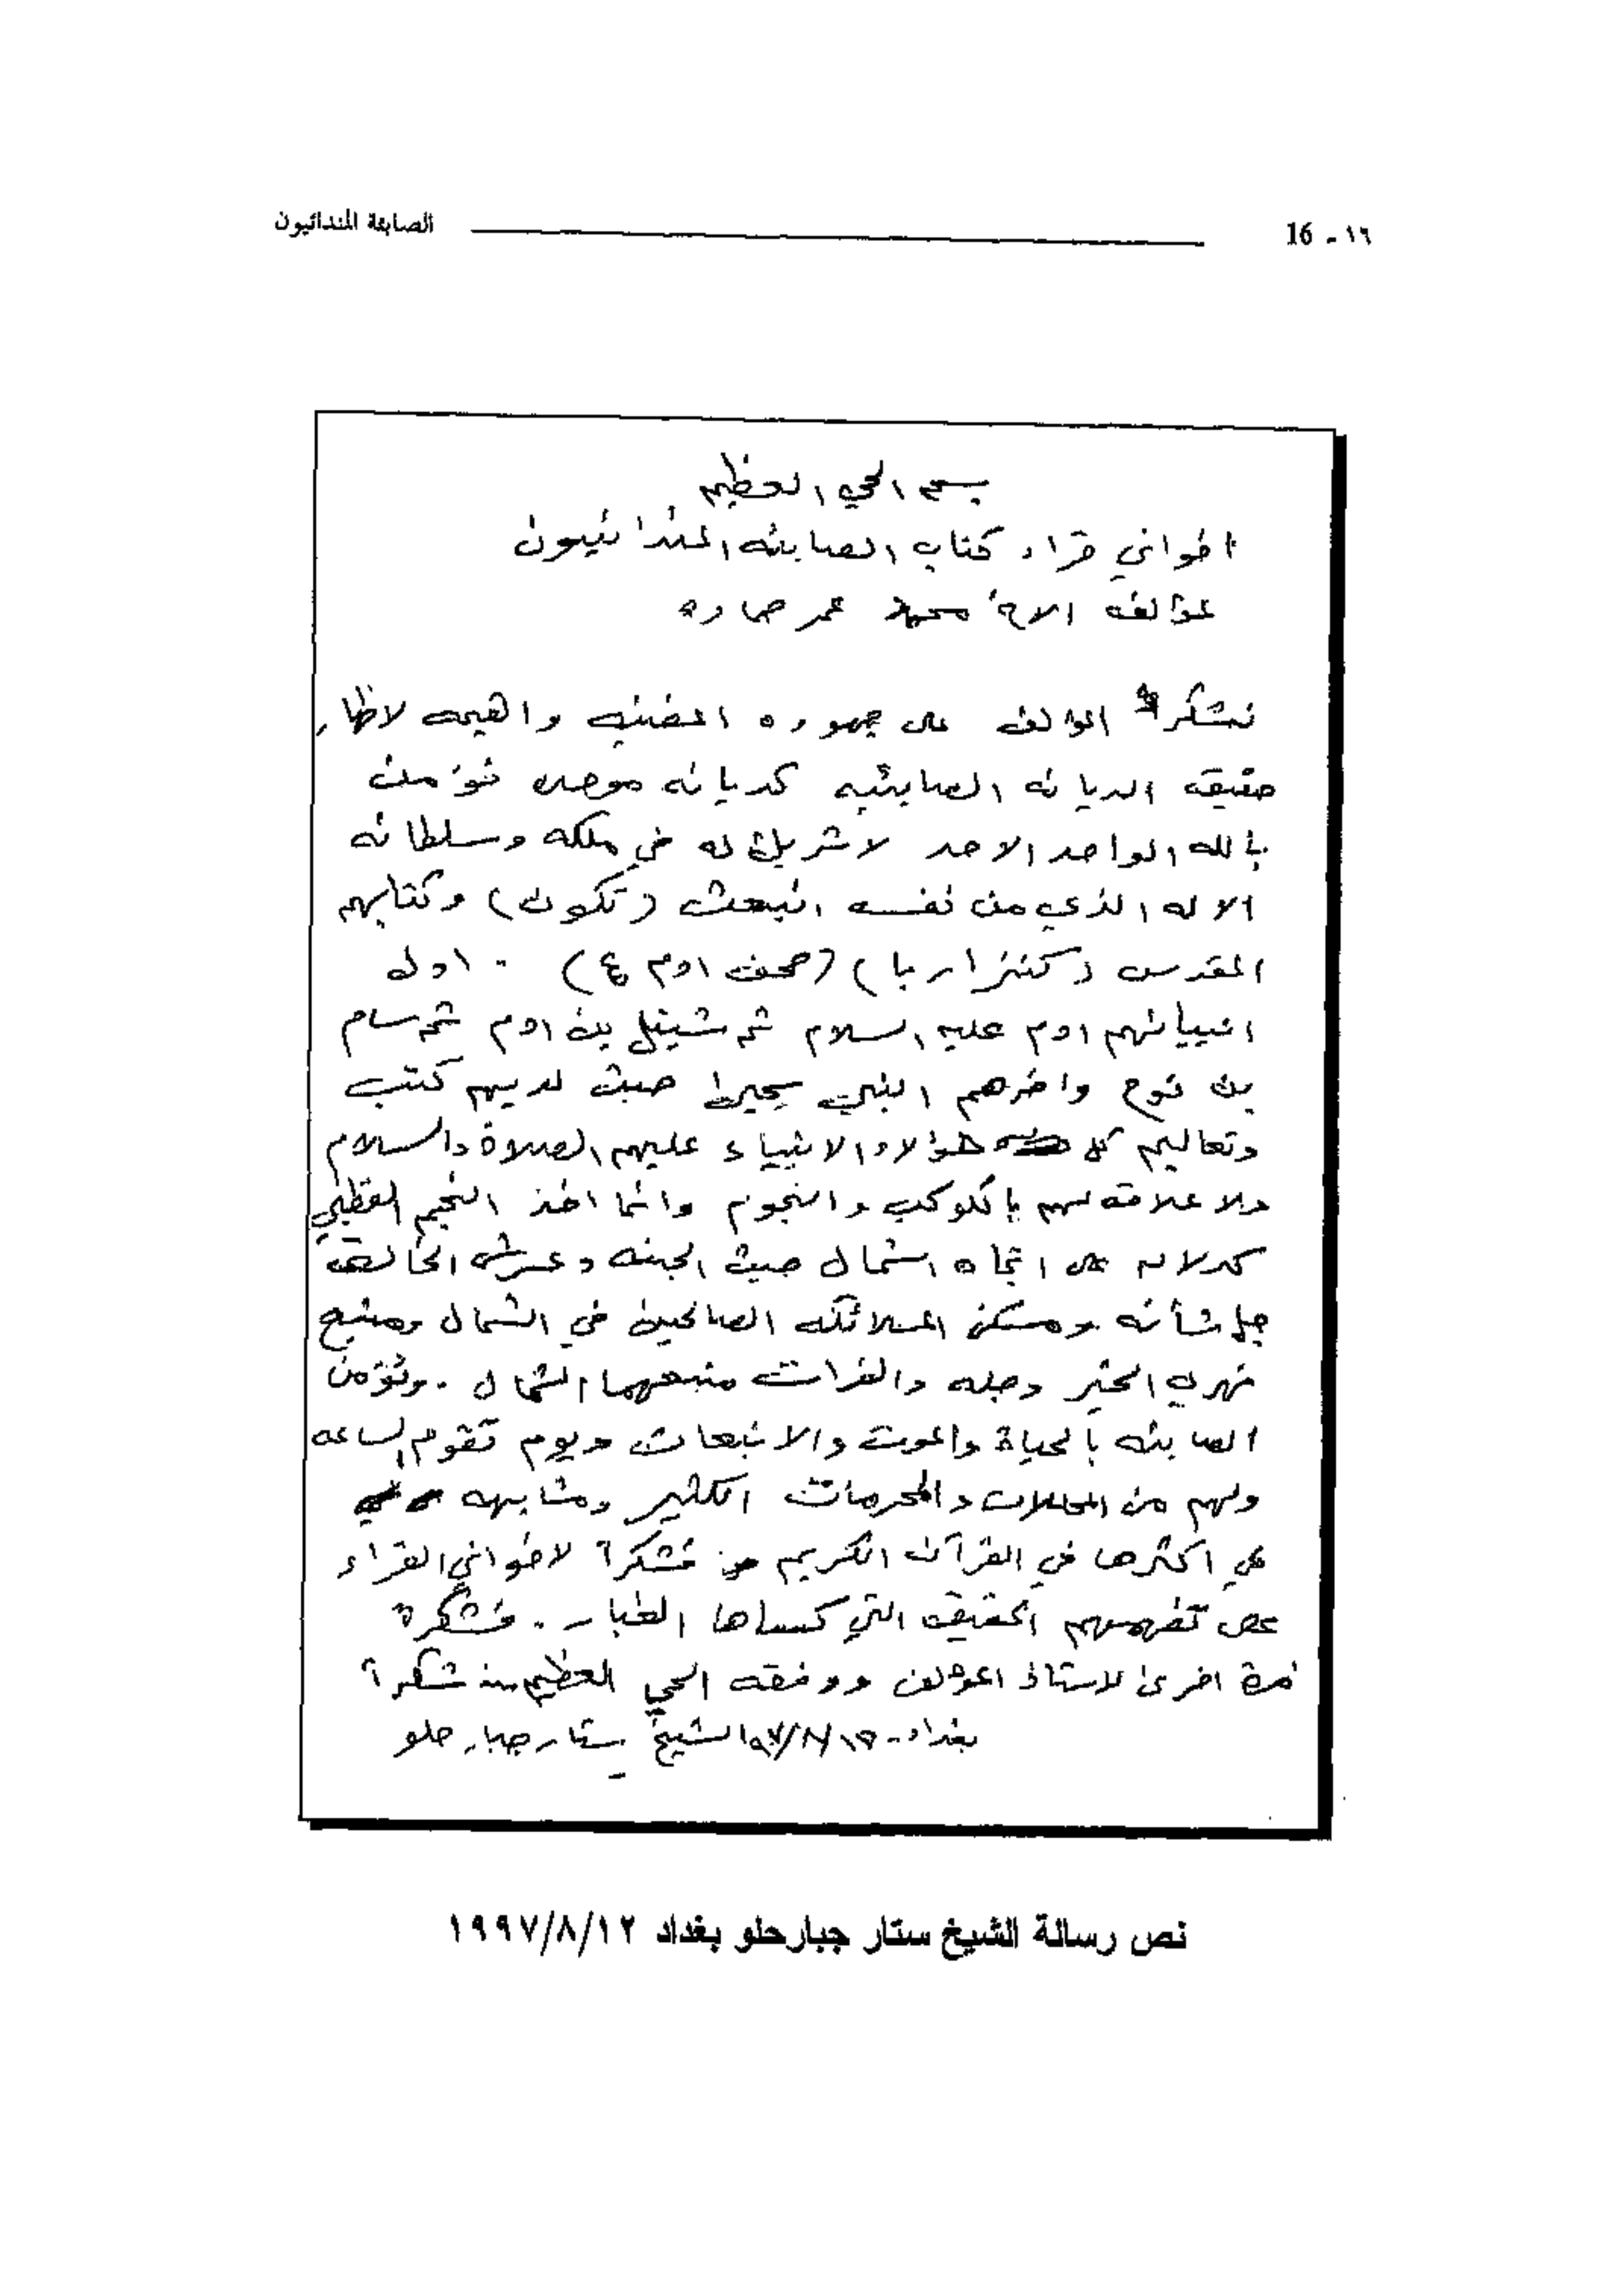 ١٦ - 16 الصابئة المندائيون
بسم الحي العظيم
اخواني قراء كتاب الصابئه المندائيون
لمؤالفه الاخ محمد عمر حماده
نشكر المؤالف على جهوده المضنيه والقيمه لاظهار
حقيقه الديانه الصابئيه كديانه موحده نؤمن
بالله الواحد الاحد لا شريك له في ملكه وسلطانه
الاله الذي من نفسه انبعث (تكون) وكتابهم
المقدس (كنزا ربا) (صحف ادم ع) . اول
انبيائهم ادم عليه السلام ثم شيتل بن ادم ثم سام
بن نوح واخرهم النبي يحيى حيث لديهم كتب
وتعاليم كل هؤلاء الانبياء عليهم الصلاة والسلام
ولا علاقه لهم بالكوكب والنجوم وانما اخذ النجم القطبي
كدلاله على اتجاه الشمال حيث الجنه وعرش الخالق
جل شأنه ومسكن الملائكه الصالحين في الشمال ومنبع
نهري الخير دجله والفرات منبعهما الشمال . ونؤمن
الصابئه بالحياة والموت والانبعاث ويوم تقوم الساعه
ولهم من المحللات والمحرمات الكثير ومشابهه
في اكثرها في القرآن الكريم فشكرا لاخواني القراء
على تفهمهم الحقيقه التي كساها الغبار . فشكرا
مرة اخرى للاستاذ المؤلف ووفقه الحي العظيم شكرا
بغداد - ٩٧/٨/١٢ الشيخ ستار جبار حلو
نص رسالة الشيخ ستار جبار حلو بغداد ١٩٩٧/٨/١٢